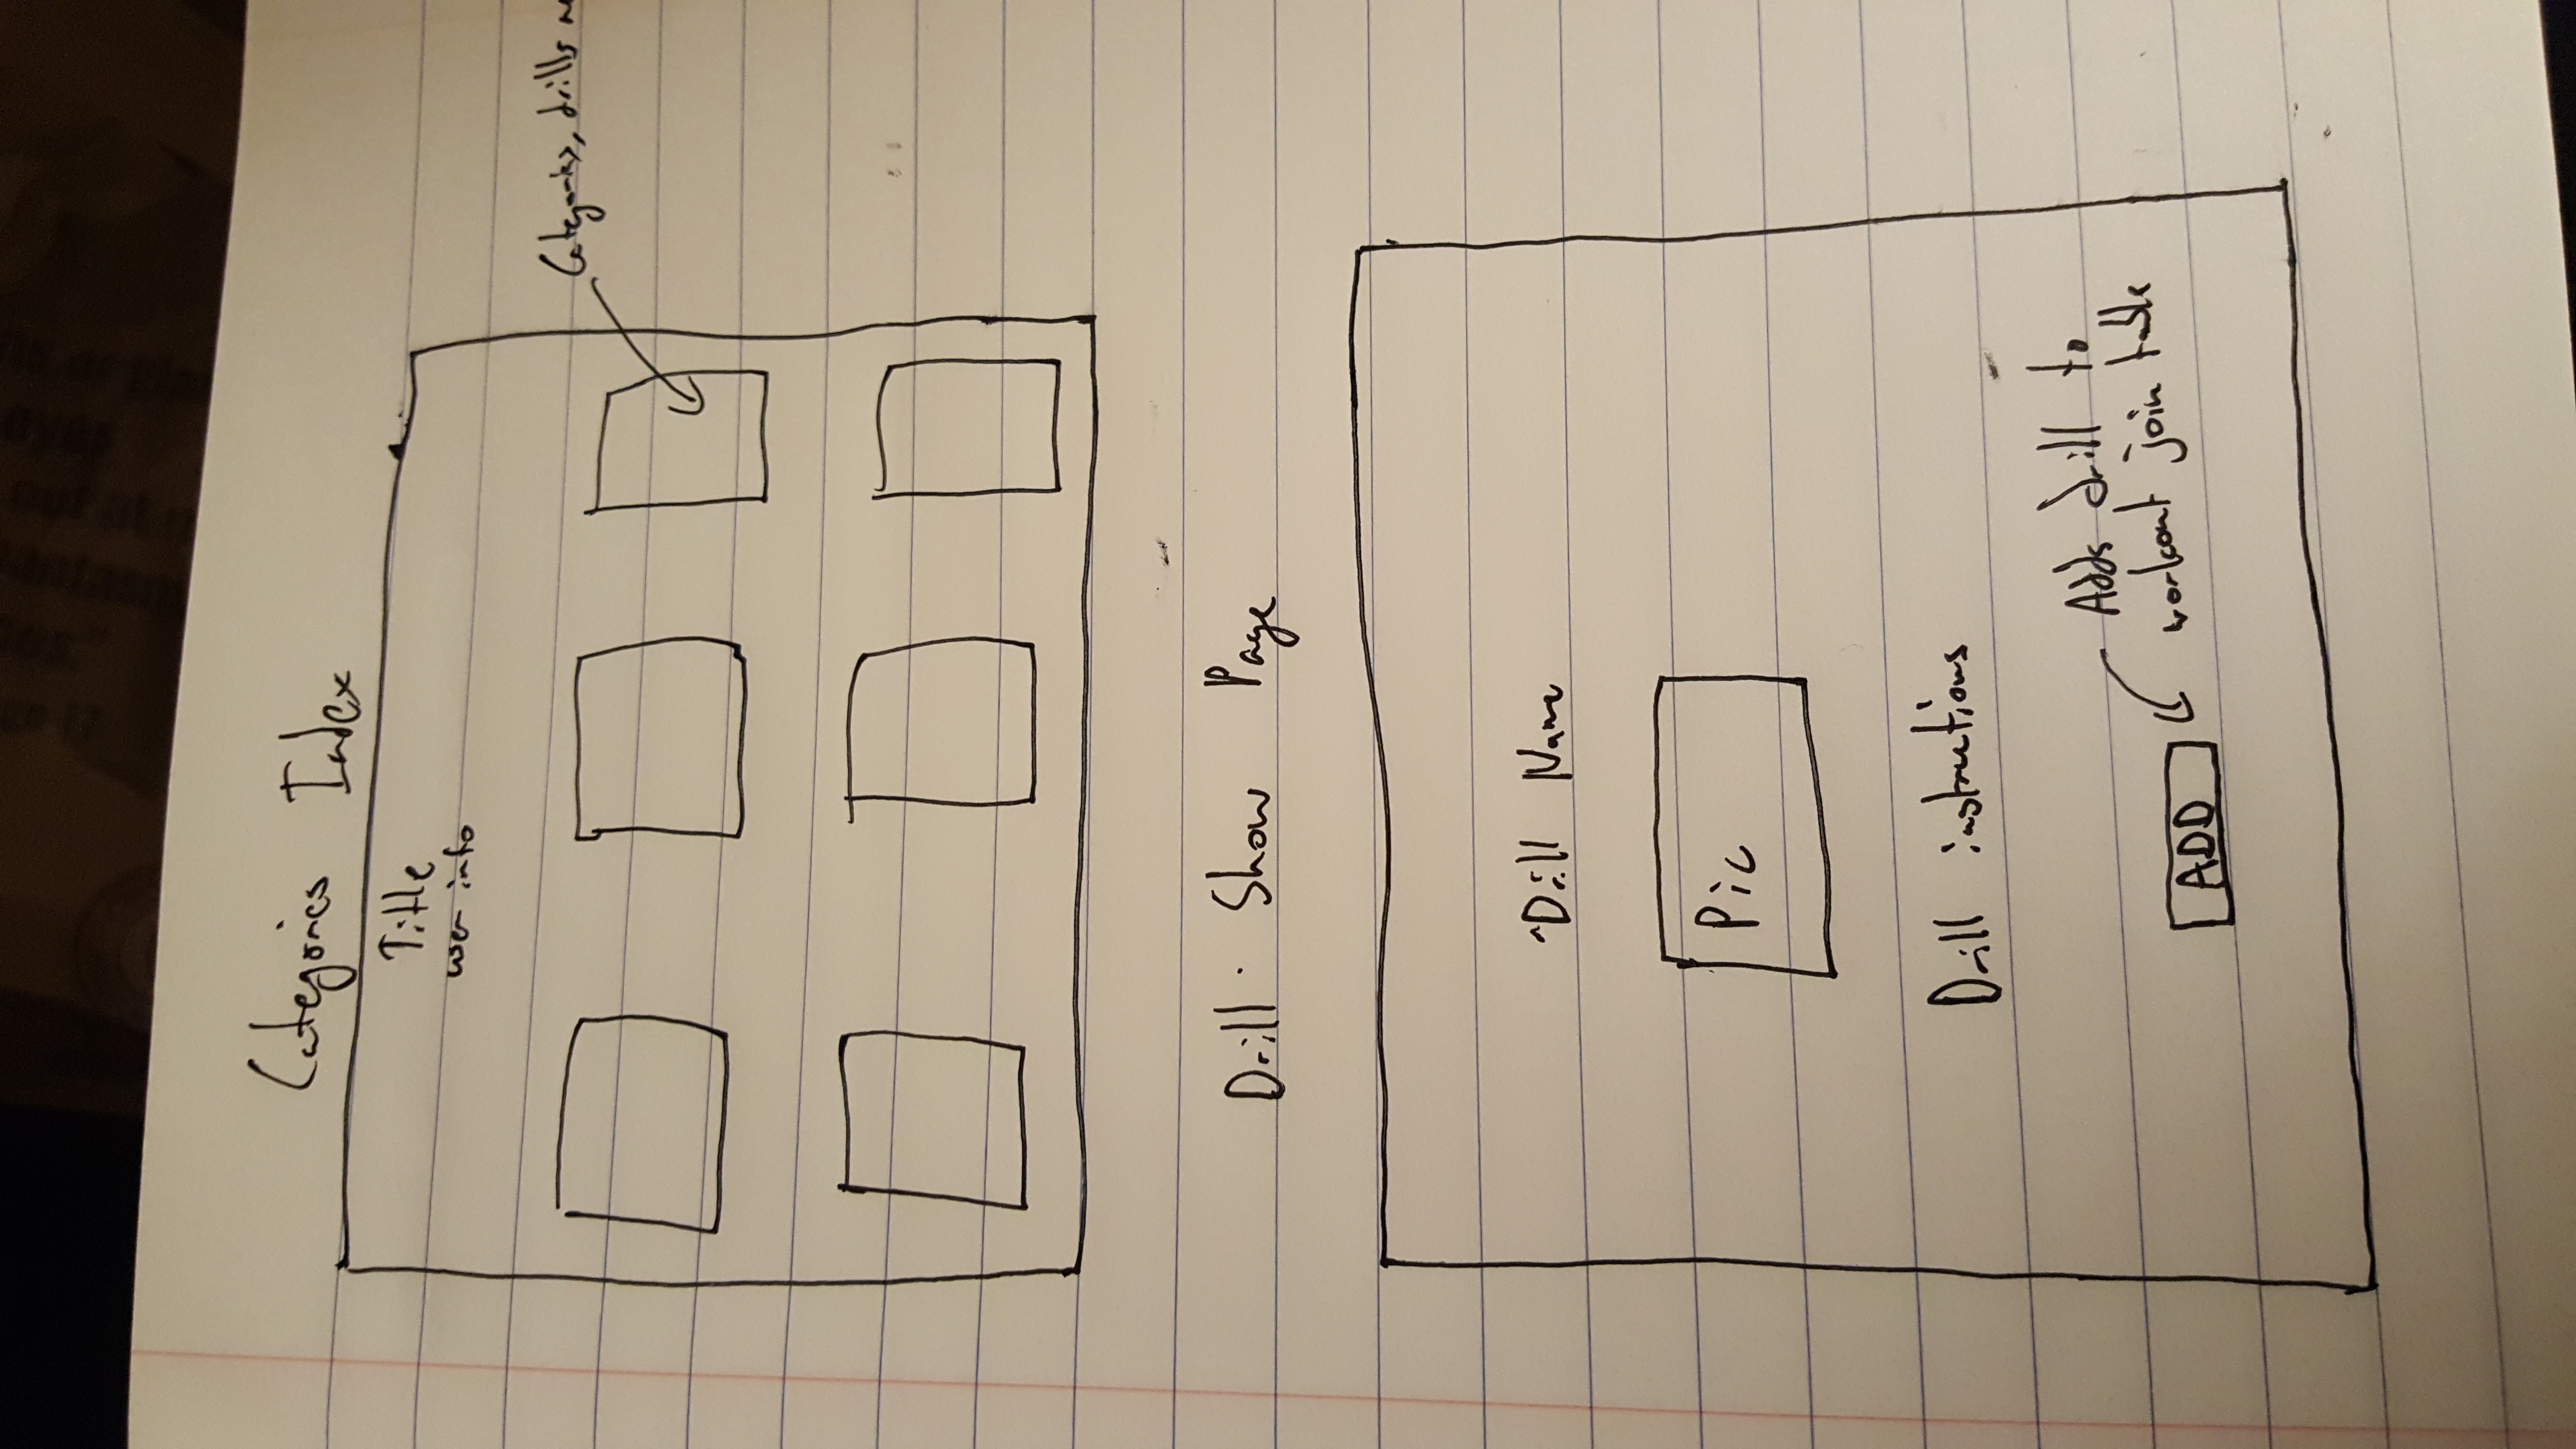 Categories Index
Title
user info
Categories, drills
Drill Show Page
Drill Name
Pic
Drill instructions
Adds drill to
workout join table
ADD